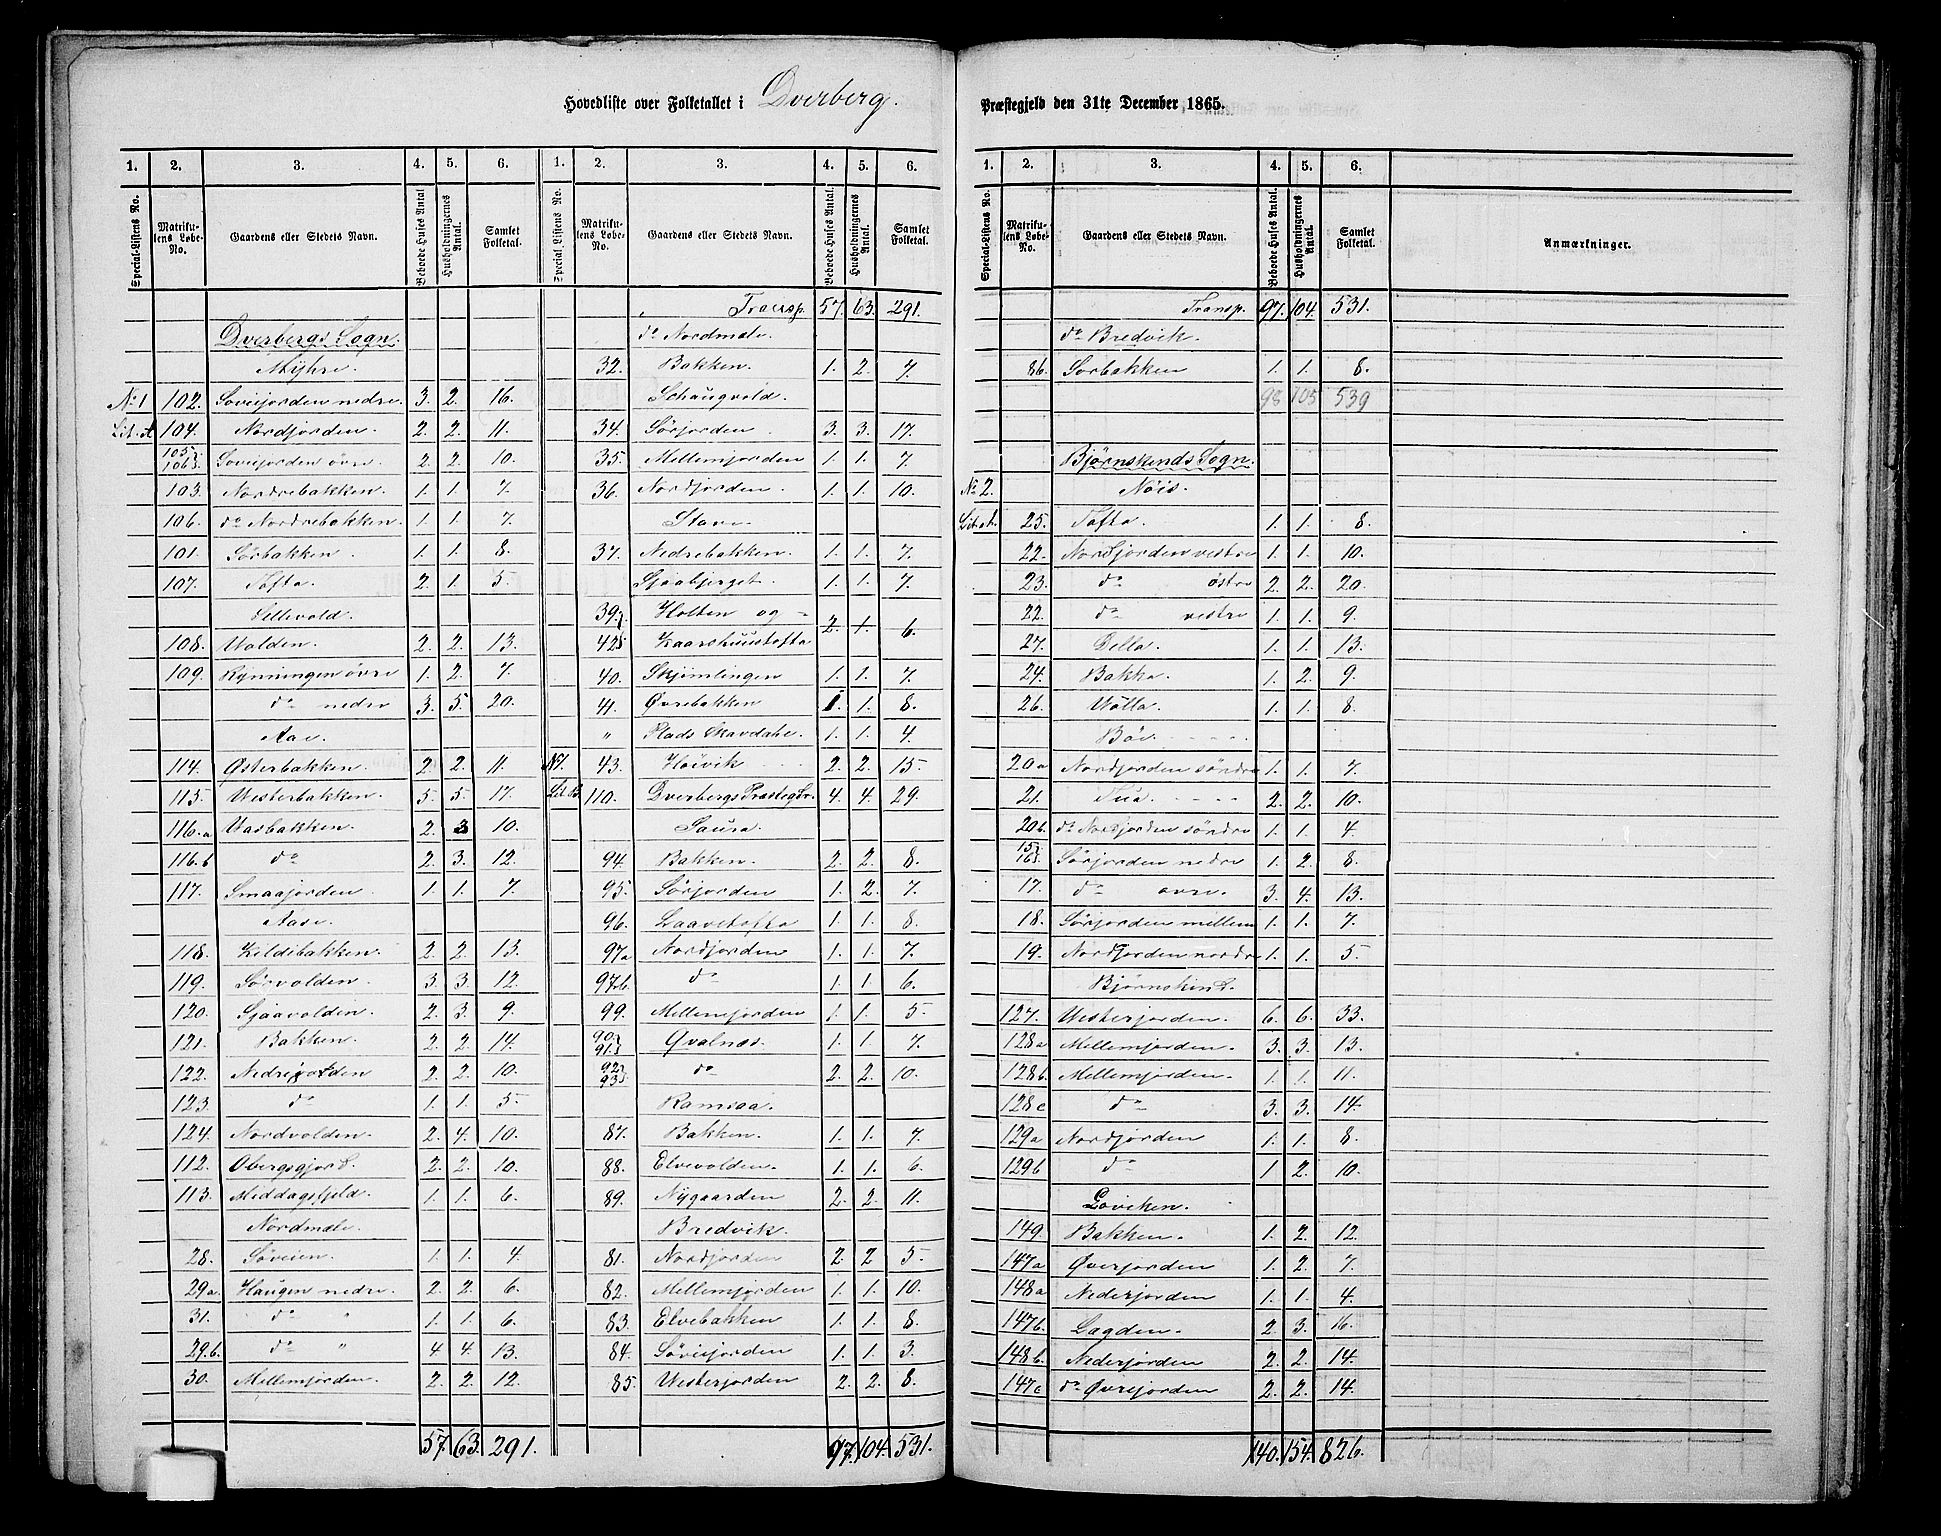 Hovedliste over Folketallet i Dverberg. Præstegjeld den 31te December 1865.
1. 2. 3. 4. 5. 6. 1. 2. 3. 4. 5. 6.
Special-Listens No. Matrikulens Løbe-No. Gaardens eller Stedets Navn. Beboede Huses Antal Husholdningernes Antal. Samlet Folketal. Special-Listens No. Matrikulens Løbe-No. Gaardens eller Stedets Navn. Beboede Huses Antal Husholdningernes Antal. Samlet Folketal.
Dverbergs Sogn.
Myhre.
No 1 102. Soveijorden nedre. 3. 2. 16.
Lit. A 104. Nordjorden. 2. 2. 11.
105. 106. Soveijorden övre 2. 2. 10.
103. Nordrebakken. 1. 1. 7.
106. do Nordrebakken. 1. 1. 7.
101. Sörbakken. 1. 1. 8.
107. Tofta. 2. 1. 5.
Sellevold.
108. Volden. 2. 2. 13.
109. Rynningen övre 1. 2. 7.
do nedre 3. 5. 20.
Aae.
114. Østerbakken. 2. 2. 11.
115. Westerbakken. 5. 5. 17.
116.a Vasbakken. 2. 3 10.
116.b do 2. 3. 12.
117. Smaajorden. 1. 1. 7.
Aase.
118. Kildebakken. 2. 2. 13.
119. Sörvolden. 3. 3. 12.
120. Sjaavolden. 2. 3. 9.
121. Bakken. 2. 2. 14.
122. Nedrejorden 2. 2. 10.
123. do 1. 1. 5.
124. Nordvolden. 2. 4. 10.
112. Obergsgjord. 2. 2. 10.
113. Middagsfjeld. 1. 1. 6.
Nordmele.
28. Söveien. 1. 1. 4.
29a Haugen nedre. 2. 2. 6.
31. do " 1. 1. 6.
29.b. do " 4 4. 13.
30. Mellemjorden. 2. 2. 12.
57. 63. 291.
Transp. 57. 63. 291.
do Nordmele.
32. Bakken. 1. 2. 7.
Schaugvold.
34. Sörjorden. 3. 3. 17.
35. Mellemjorden 1. 1. 7.
36. Nordjorden. 1. 1. 10.
Stave.
37. Nedrebakken. 1. 1. 7.
Sjaabjerget. 1. 1. 7.
39. Holten og -
42 Kaarshuustofta 2. 1. 6.
40. Skjømlingen 1. 1. 7.
41. Øvrebakken 1. 1. 8.
" Plads Skavdahe. 1. 1. 4.
43. Höivik 2. 2. 15.
Lit. B. 110. Dverbergs Præstegd. 4. 4. 29.
Saura.
94. Bakken. 2. 2. 8.
95. Sörjorden 1. 2. 7.
96. Laavetofta 1. 1. 8.
97a Nordjorden 1. 1. 7.
97b. do 1. 1. 6.
99. Mellemjorden 1. 1. 5.
90. 91. Qvalnæs. 1. 1. 7.
92. 93. do 2. 2. 10.
Ramsaa.
87. Bakken. 1. 1. 7.
88. Elvevolden. 1. 1. 6.
89. Nygaarden 2. 2. 11.
Bredvik.
81. Nordjorden 2. 2 5.
82. Mellemjorden 1. 1. 10.
83. Elvebakken 1. 1. 8.
84. Söreijorden 1. 1. 3.
85. Westerjorden 2. 2. 8.
97. 104. 531.
1. 2. 3. 4. 5. 6.
Special-Listens No. Matrikulens Løbe-No. Gaardens eller Stedets Navn. Beboede Huses Antal. Husholdningernes Antal. Samlet Folketal. Anmærkninger.
Transp. 97. 104. 531.
do Bredvik.
86. Sorbakken 1. 1. 8.
98 105 539
Bjørnskinds Sogn.
No 2. Nöis.
25. Tofta. 1. 1. 8.
22. Nordjorden vestre 1. 1. 10.
23. do östre 2. 2. 20.
22. do vestre 1. 1. 9.
27. Della. 1. 1. 13.
24. Bakka. 1. 2. 9.
26. Volla. 1. 1. 8.
Böe.
20a Nordjorden söndre 1. 1. 7.
21. Tua. 2. 2. 10.
20b. do Nordjorden söndre 1. 1. 4.
15. 16. Sörjorden nedre 1. 2. 8.
17. do övre. 3. 4. 13.
18. Sörjorden mellem 1. 1. 7.
19. Nordjorden nordre 1. 1. 5.
Bjørnskind.
127. Westerjorden. 6. 6. 33.
128a Mellemjorden. 3. 3. 13.
128b. Mellemjorden. 1. 1. 11.
128c do 3. 3. 14.
129a Nordjorden 1. 1. 8.
129b do 1. 2. 10.
Loviken.
149. Bakken. 1. 2. 12.
147a Øverjorden 1. 2. 7.
148a Nederjorden 1. 1. 4.
147b. Lagden. 2. 3. 16.
148b. Nederjorden 2. 2. 14.
147c do Øvrejorden 2. 2. 14.
140. 154. 826.